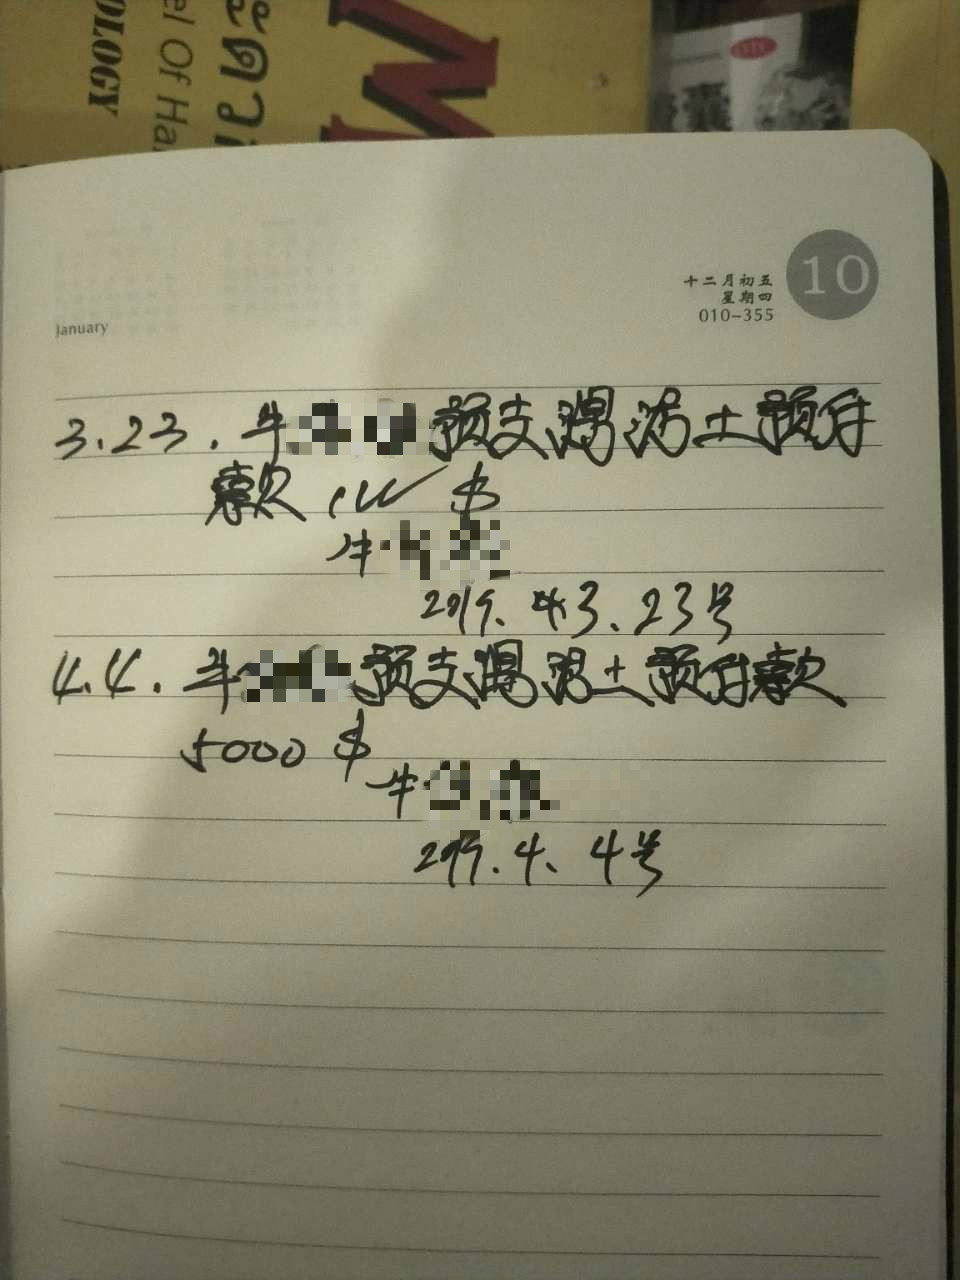 OLOGY
el Of Ha
M
10
十二月初五
星期四
010-355
January
3.23.牛 预支混泥土预付
款 1W $
牛
2019. 3.23号
4.4.牛 预支混泥土预付款
5000 $
牛
2019.4.4号